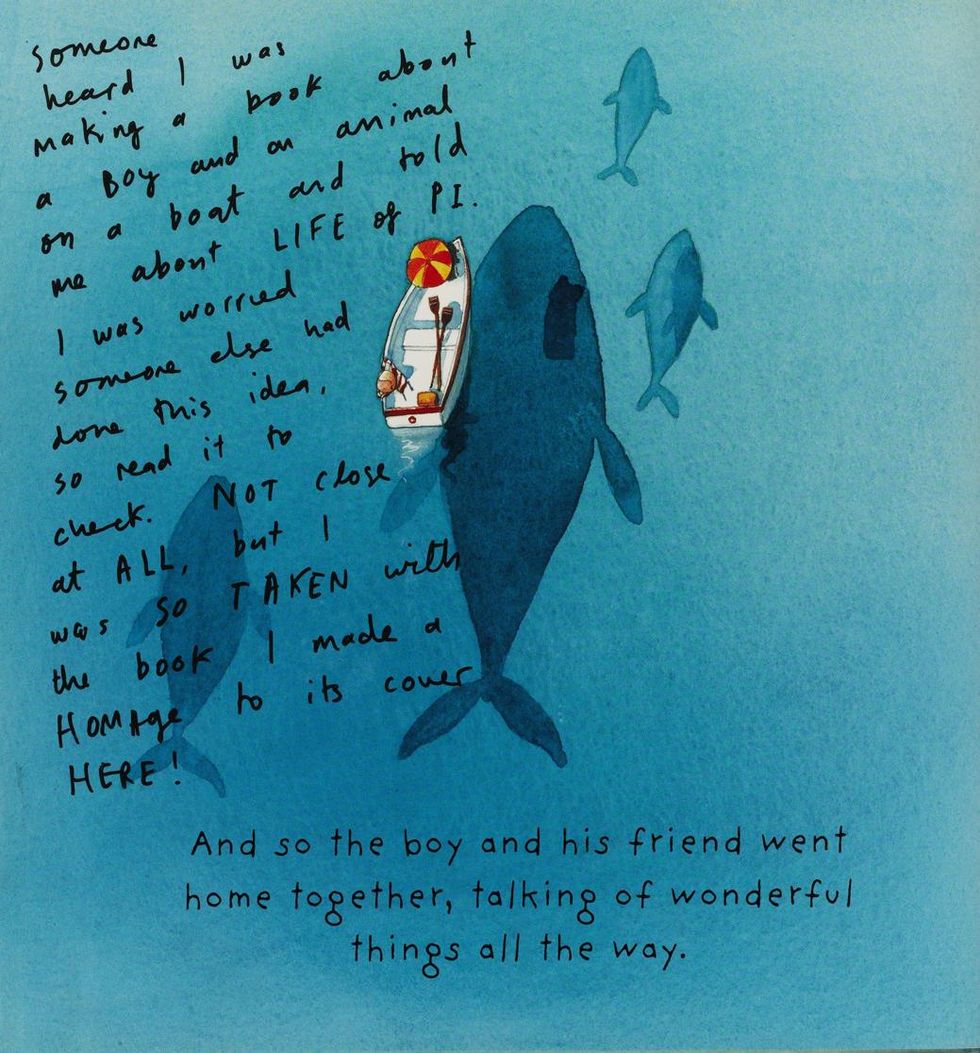 someone
heard I was
making a book about
a BOY and an animal
on a boat and told
me about LIFE of PI.
I was worried
someone else had
done this idea,
so read it to
check. NOT close
at ALL, but I
was SO TAKEN with
the book I made a
HOMAge to its cover
HERE!
And so the boy and his friend went
home together, talking of wonderful
things all the way.